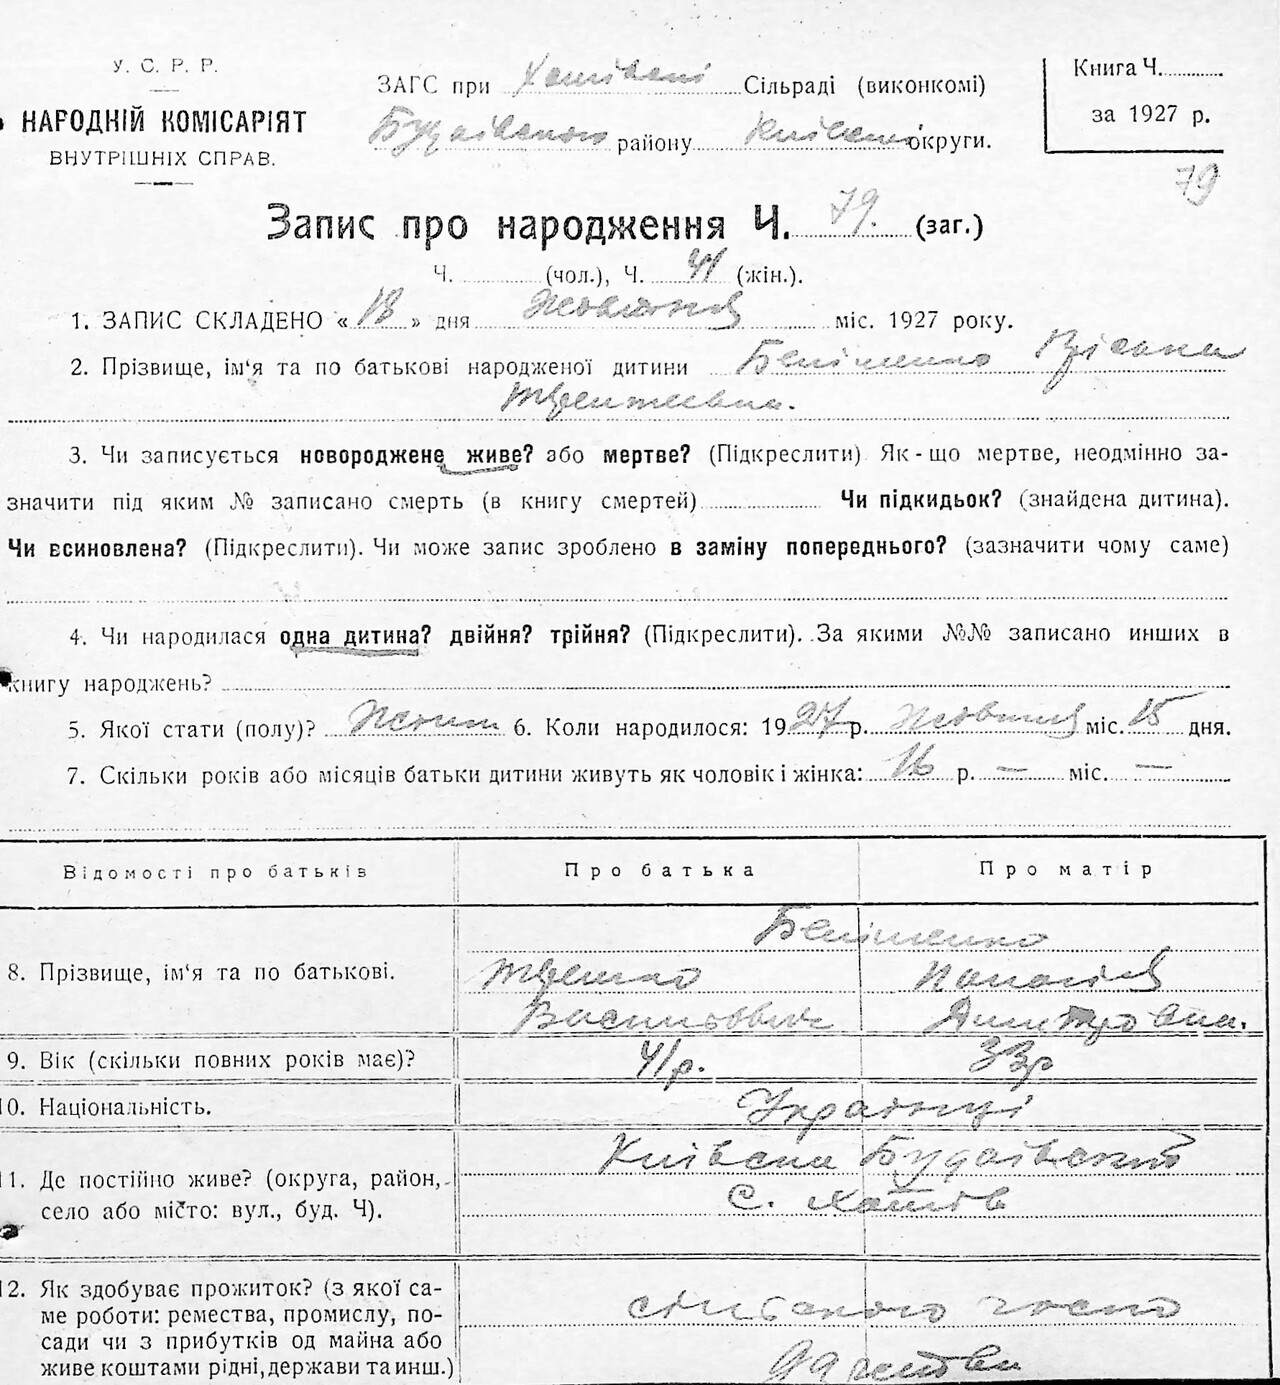 У. С. Р. Р.
НАРОДНІЙ КОМІСАРІЯТ
ВНУТРІШНІХ СПРАВ.
ЗАГС при Хотівські Сільраді (виконкомі)
Будаївського району Київської округи.
Книга Ч.
за 1927 р.
79
Запис про народження Ч. 79. (заг.)
Ч. (чол.), Ч. 41 (жін.).
1. ЗАПИС СКЛАДЕНО « 18 » дня Жовтня міс. 1927 року.
2. Прізвище, ім‘я та по батькові народженої дитини
3. Чи записується новороджене живе? або мертве? (Підкреслити) Як-що мертве, неодмінно за-
значити під яким № записано смерть (в книгу смертей) Чи підкидьок? (знайдена дитина).
Чи всиновлена? (Підкреслити). Чи може запис зроблено в заміну попереднього? (зазначити чому саме)
4. Чи народилася одна дитина? двійня? трійня? (Підкреслити). За якими №№ записано инших в
книгу народжень?
5. Якої стати (полу)? 6. Коли народилося: 1927 р. Жовтня міс. 15 дня.
7. Скільки років або місяців батьки дитини живуть як чоловік і жінка: 16 р. — міс. —
Відомості про батьків Про батька Про матір
8. Прізвище, ім‘я та по батькові.
Васильович Дмитровна.
9. Вік (скільки повних років має)? 41 р.
10. Національність. Українці
11. Де постійно живе? (округа, район,
село або місто: вул., буд. Ч).
Київська Будаївський
С. Хотів
12. Як здобуває прожиток? (з якої са-
ме роботи: ремества, промислу, по-
сади чи з прибутків од майна або
живе коштами рідні, держави та инш.)
сільського госпо
дарства